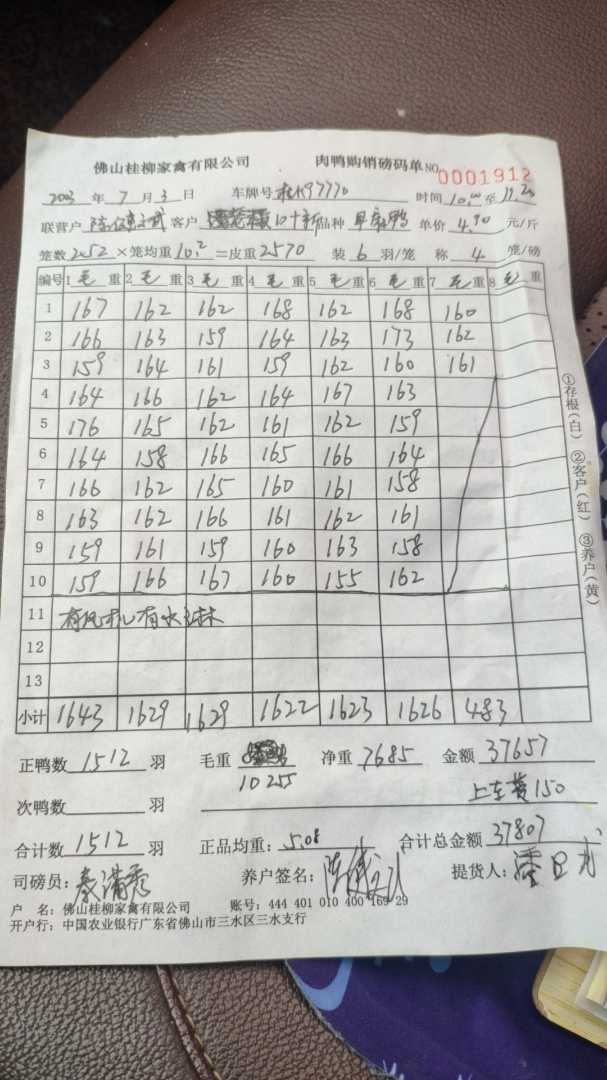 佛山桂柳家禽有限公司 肉鸭购销磅码单 NO 0001912
2023 年 7 月 3 日 车牌号 桂K97770 时间 10.00 至 11.20
联营户 客户 品种 单价 4.90 元/斤
笼数 252 ×笼均重 10.2 =皮重 2570 装 6 羽/笼 称 4 笼/磅
编号 1 毛 重 2 毛 重 3 毛 重 4 毛 重 5 毛 重 6 毛 重 7 毛 重 8 毛 重
1 167 162 162 168 162 168 160
2 166 163 159 164 163 173 162
3 159 164 161 159 162 160 161
4 164 166 162 164 167 163
5 176 165 162 161 162 159
6 164 158 166 165 166 164
7 166 162 165 160 161 158
8 163 162 166 161 162 161
9 159 161 159 160 163 158
10 159 166 167 160 155 162
11
12
13
小计 1643 1629 1629 1622 1623 1626 483
正鸭数 1512 羽 毛重 10255 净重 7685 金额 37657
次鸭数 羽 上车费150
合计数 1512 羽 正品均重: 5.08 合计总金额 37807
司磅员: 秦满秀 养户签名: 提货人:
户 名: 佛山桂柳家禽有限公司 账号: 444 401 010 400 169 29
开户行: 中国农业银行广东省佛山市三水区三水支行
①存根(白) ②客户(红) ③养户(黄)